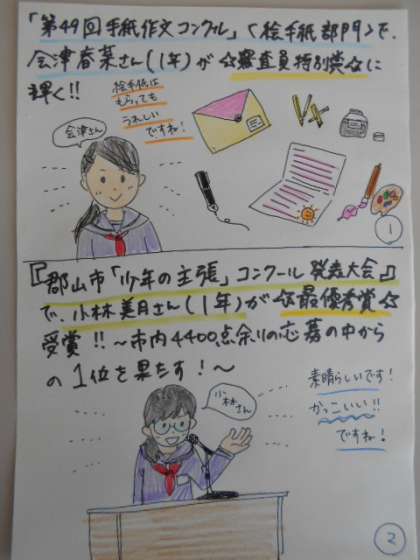 「第49回手紙作文コンクール」〈絵手紙部門〉で、
会津春菜さん(1年)が☆審査員特別賞☆に
輝く!!
絵手紙は
もらっても
うれしい
ですね!
会津さん
1
『郡山市「少年の主張」コンクール発表大会』
で、小林美月さん(1年)が☆最優秀賞☆
受賞!!〜市内4400点余りの応募の中から
の1位を果たす!〜
小林さん
素晴らしいです!
かっこいい!!
ですね!
2